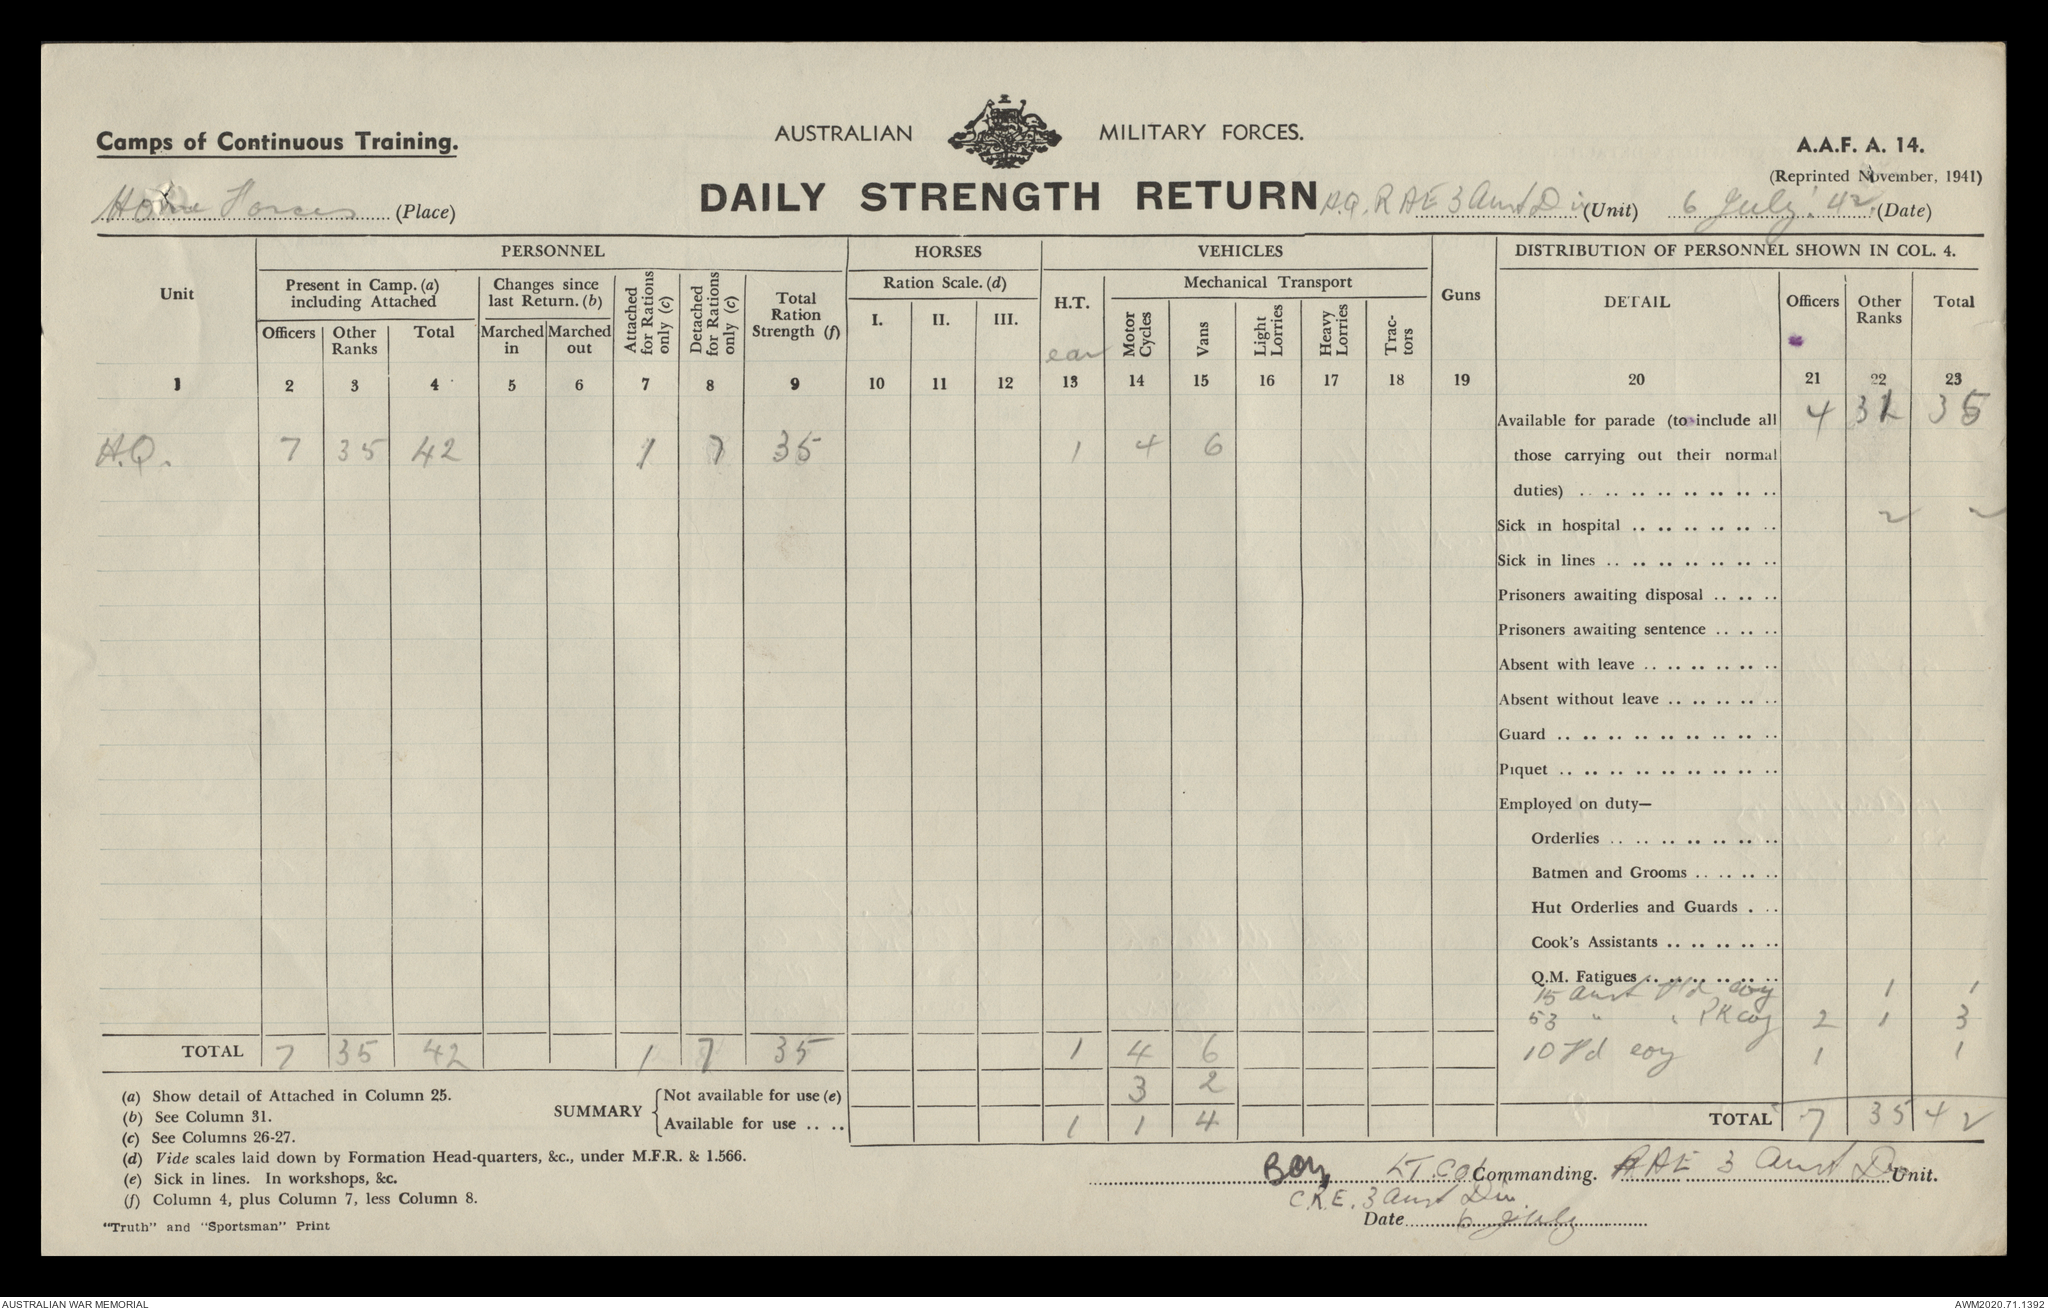 Camps of Continuous Training.
AUSTRALIAN MILITARY FORCES.
A.A.F. A. 14.
(Reprinted November, 1941)
Home Forces (Place)
DAILY STRENGTH RETURN
H.Q. RAE 3 Aust Div (Unit) 6 July 42. (Date)
PERSONNEL HORSES VEHICLES DISTRIBUTION OF PERSONNEL SHOWN IN COL. 4.
Unit
Present in Camp. (a) including Attached
Changes since last Return. (b)
Attached for Rations only (c)
Detached for Rations only (c)
Total Ration Strength (f)
Ration Scale. (d)
H.T.
Mechanical Transport
Guns
DETAIL Officers Other Ranks Total
Officers Other Ranks Total Marched in Marched out
I. II. III.
car
Motor Cycles
Vans
Light Lorries
Heavy Lorries
Trac-tors
1 2 3 4 5 6 7 8 9 10 11 12 13 14 15 16 17 18 19 20 21 22 23
H.Q. 7 35 42 1 7 35 1 4 6
Available for parade (to include all 4 31 35
those carrying out their normal
duties) .. .. .. .. .. .. .. ..
Sick in hospital .. .. .. .. .. .. 2 2
Sick in lines .. .. .. .. .. .. ..
Prisoners awaiting disposal .. .. ..
Prisoners awaiting sentence .. .. ..
Absent with leave .. .. .. .. .. ..
Absent without leave .. .. .. .. ..
Guard .. .. .. .. .. .. .. .. ..
Piquet .. .. .. .. .. .. .. .. ..
Employed on duty—
Orderlies .. .. .. .. .. .. ..
Batmen and Grooms .. .. .. ..
Hut Orderlies and Guards . ..
Cook's Assistants .. .. .. .. ..
Q.M. Fatigues .. .. .. .. ..
15 Aust Fd coy 1 1
53 " " PK coy 2 1 3
10 Fd coy 1 1
TOTAL 7 35 42 1 7 35 1 4 6
SUMMARY
Not available for use (e) 3 2
Available for use .. .. 1 1 4
TOTAL 7 35 42
(a) Show detail of Attached in Column 25.
(b) See Column 31.
(c) See Columns 26-27.
(d) Vide scales laid down by Formation Head-quarters, &c., under M.F.R. & I.566.
(e) Sick in lines. In workshops, &c.
(f) Column 4, plus Column 7, less Column 8.
"Truth" and "Sportsman" Print
LT. Col Commanding. RAE 3 Aust Div Unit.
C.R.E. 3 Aust Div
Date 6 July
AUSTRALIAN WAR MEMORIAL
AWM2020.71.1392